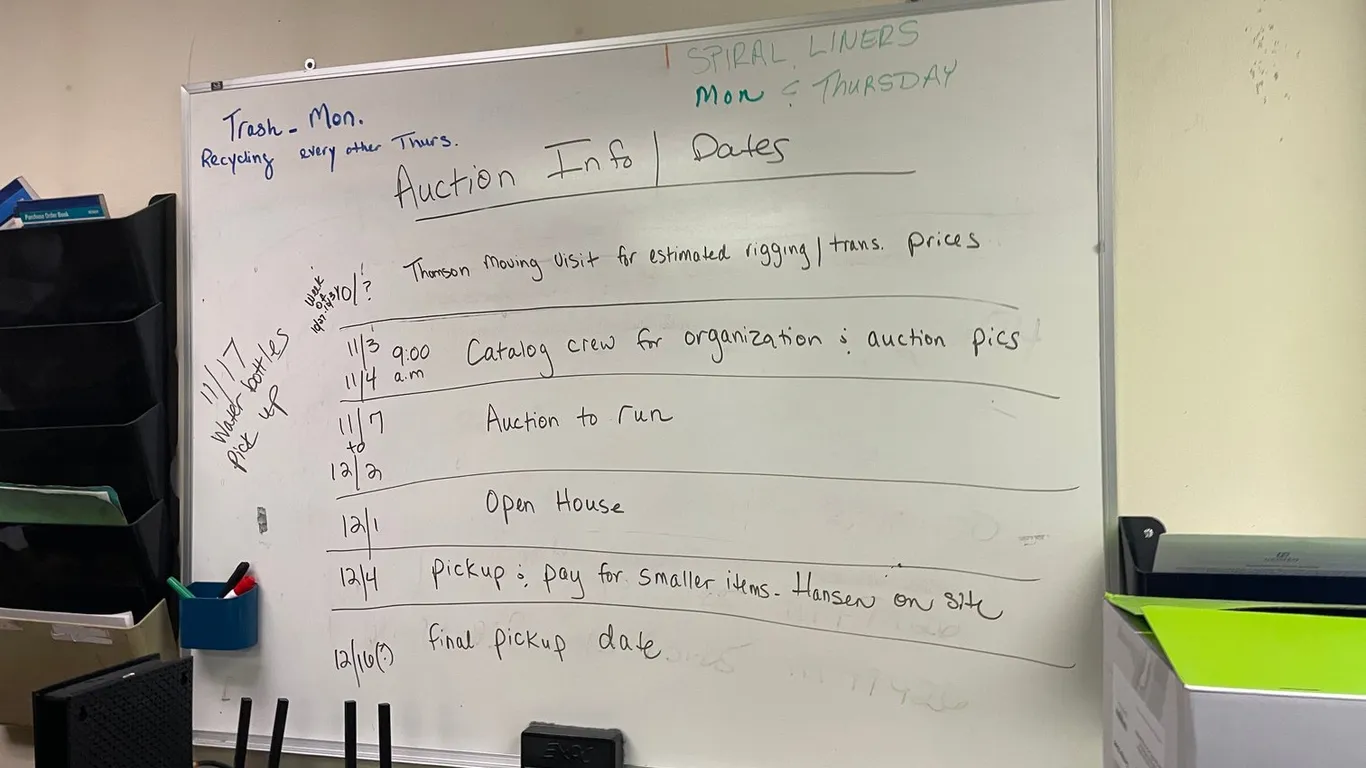 SPIRAL LINERS
Mon & THURSDAY
Trash - Mon.
Recycling every other Thurs.
Auction Info | Dates
Week of 10/27-10/31
10/? Thomson Moving visit for estimated rigging / trans. prices
11/3 9:00 Catalog crew for organization & auction pics
11/4 a.m
11/7 Auction to run
to
12/2
12/1 Open House
12/4 pickup & pay for smaller items - Hansen on site
12/16(?) final pickup date
11/17
Water bottles
pick up
Purchase Order Book